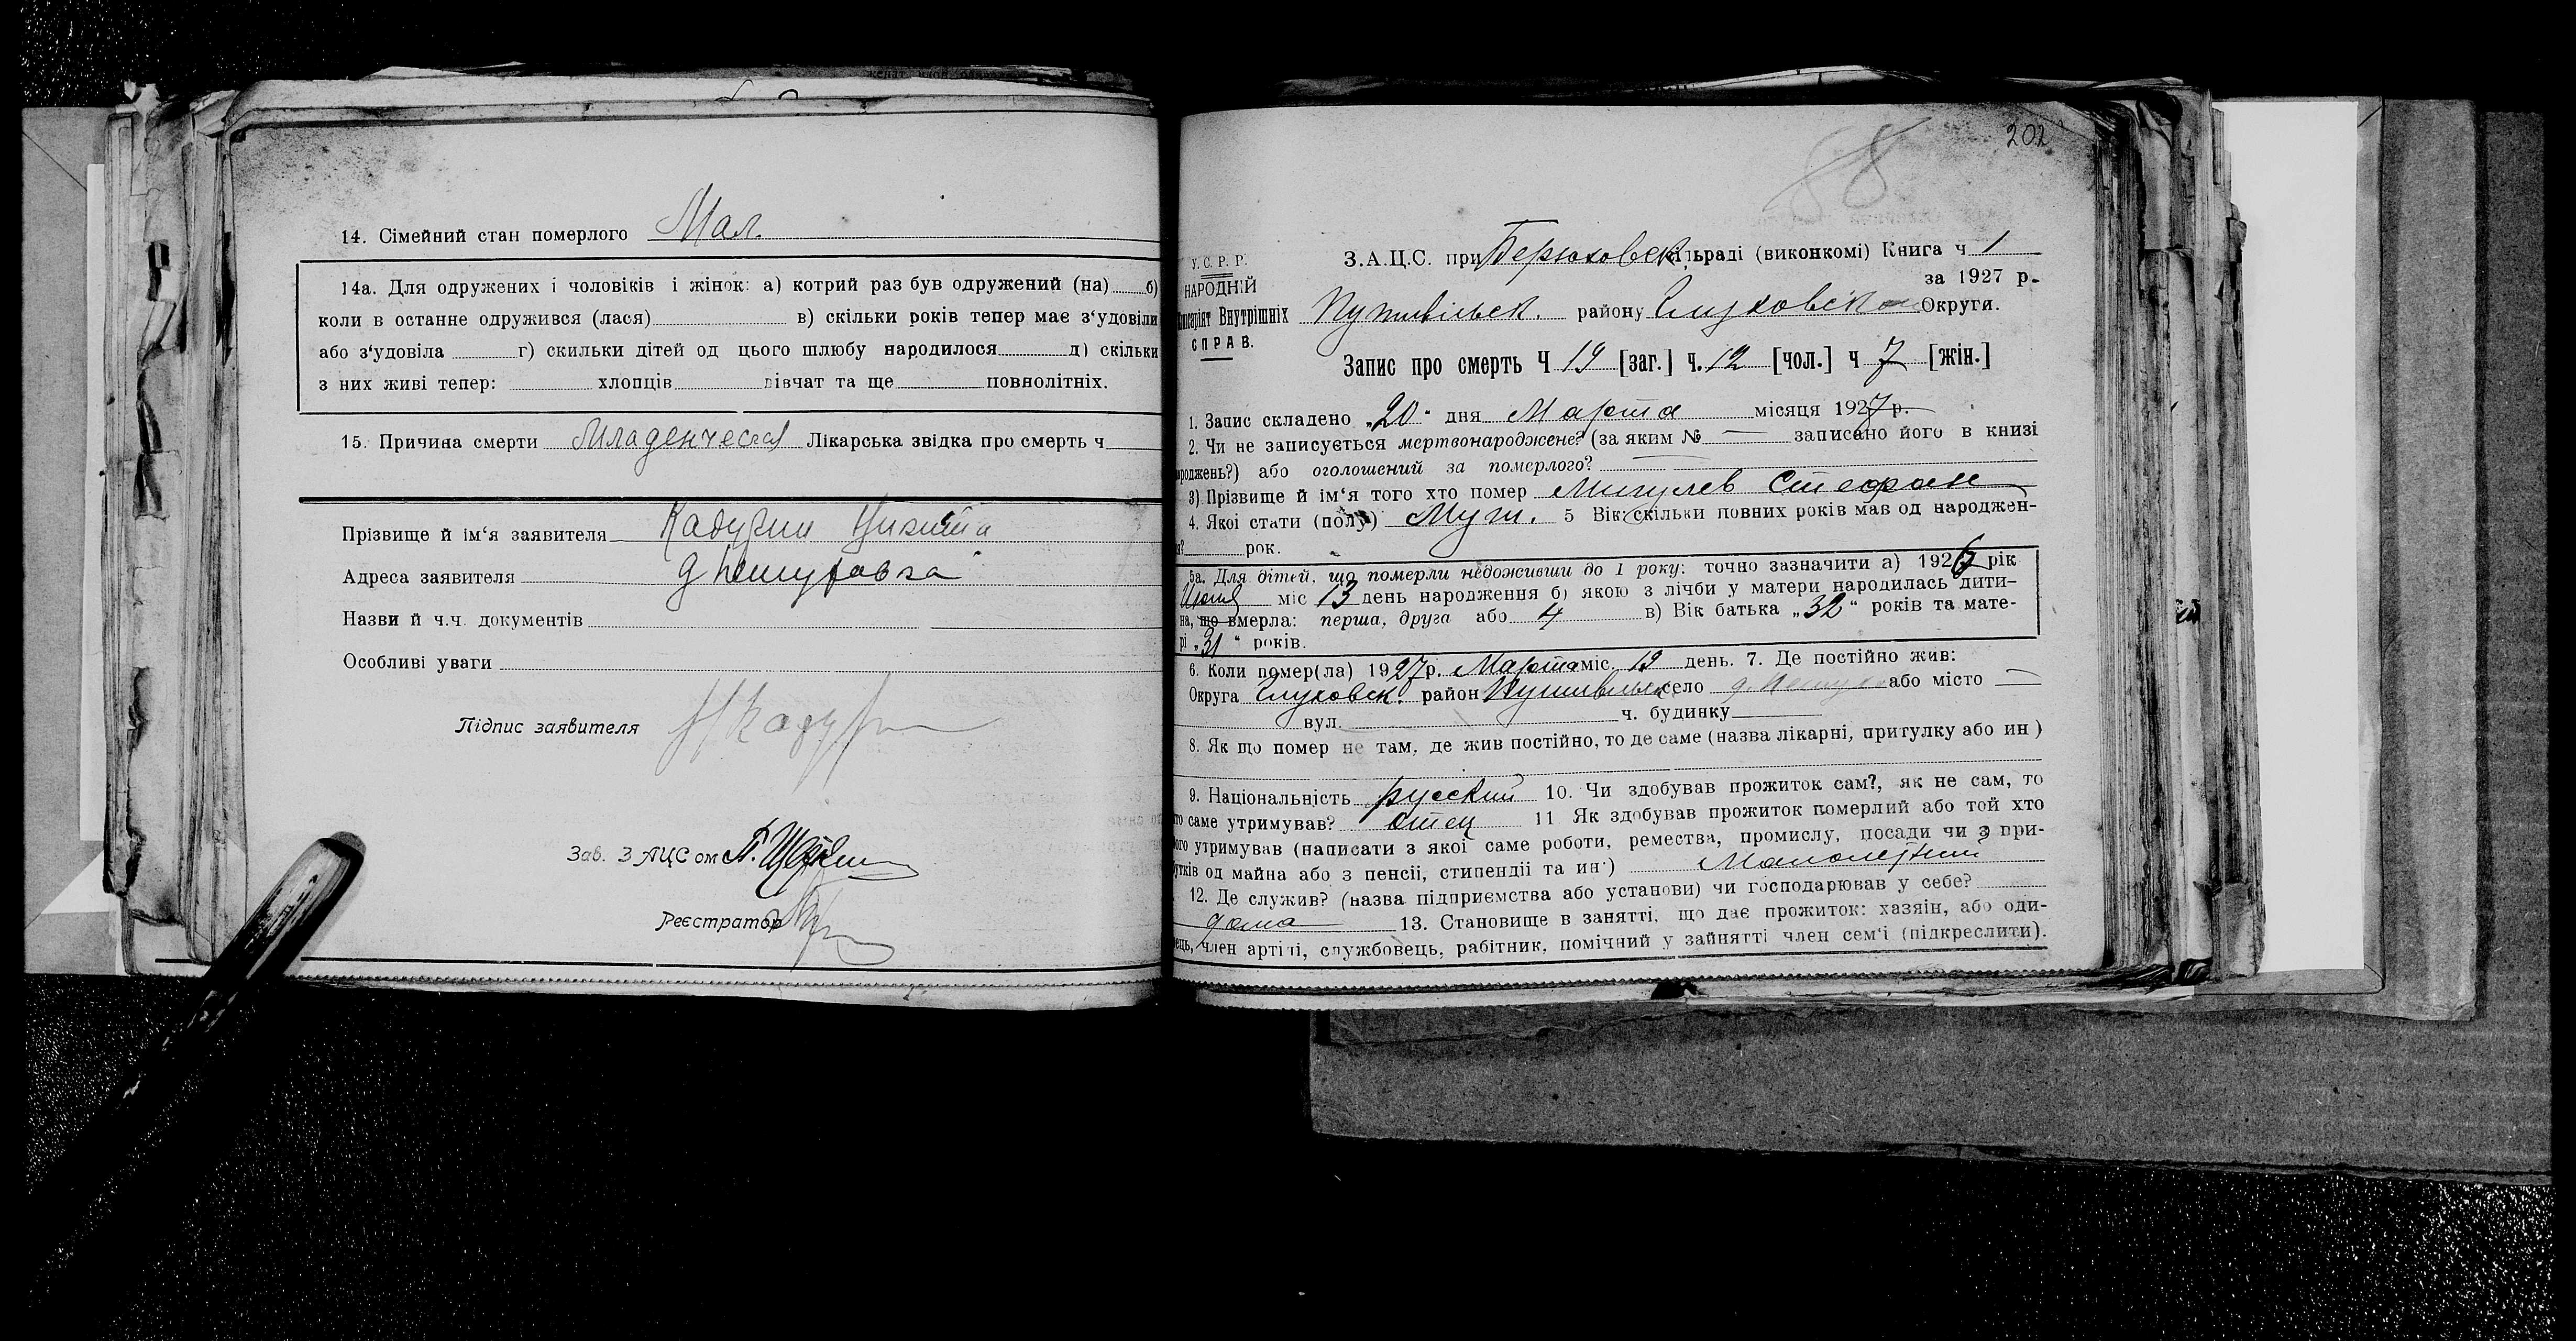 14. Сімейний стан померлого Мал.
14а. Для одружених і чоловіків і жінок: а) котрий раз був одружений (на) б)
коли в останне одружився (лася) в) скільки років тепер має з'удовіли
або з'удовіла г) скильки дітей од цього шлюбу народилося д) скільки
з них живі тепер: хлопців дівчат та ще повнолітніх.
15. Причина смерти Младенческая Лікарська звідка про смерть ч
Прізвище й ім'я заявителя Кадурин Никита
Адреса заявителя д
Назви й ч.ч. документів
Особливі уваги
Підпис заявителя
Зав. ЗАЦС ом
Реєстратор
202
88
У.С.Р.Р.
НАРОДНІЙ
Комісаріят Внутрішніх
СПРАВ.
З.А.Ц.С. при Берюховск. сільраді (виконкомі) Книга ч 1
за 1927 р.
Путивільск. району Глуховской Округи.
Запис про смерть Ч 19 [заг.] ч. 12 [чол.] ч 7 [жін.]
1. Запис складено „20" дня Марта місяця 1927 р.
2. Чи не записується мертвонароджене? (за яким № — записано його в книзі
народжень?) або оголошений за померлого? —
3) Прізвище й ім'я того хто помер Стефан
4. Якої стати (полу) Муж. 5 Вік: скільки повних років мав од народжен-
ня? рок.
5а. Для дітей, що померли недоживши до 1 року: точно зазначити а) 1926 рік
міс 13 день народження б) якою з лічби у матери народилась дити-
на, що вмерла: перша, друга або 4 в) Вік батька „32" років та мате-
рі „31" років.
6. Коли помер(ла) 1927 р. Марта міс. 19 день. 7. Де постійно жив:
Округа Глуховск. район Путивільск село д. або місто —
вул. ч. будинку
8. Як що помер не там, де жив постійно, то де саме (назва лікарні, притулку або ин)
9. Національність русский 10. Чи здобував прожиток сам?, як не сам, то
хто саме утримував? отец 11 Як здобував прожиток померлий або той хто
його утримував (написати з якої саме роботи, ремества, промислу, посади чи з при-
бутків од майна або з пенсії, стипендії та ин.) Малолетний
12. Де служив? (назва підприємства або установи) чи господарював у себе?
дома 13. Становище в занятті, що дає прожиток: хазяїн, або оди-
нець, член артілі, службовець, рабітник, помічний у зайнятті член сем'ї (підкреслити).